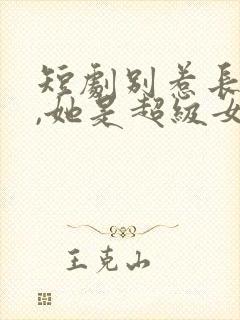 短劇别惹長
,她是超級女
王克山